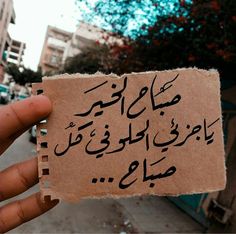 صباح الخير
يا جزئي الحلو في كل
صباح ...